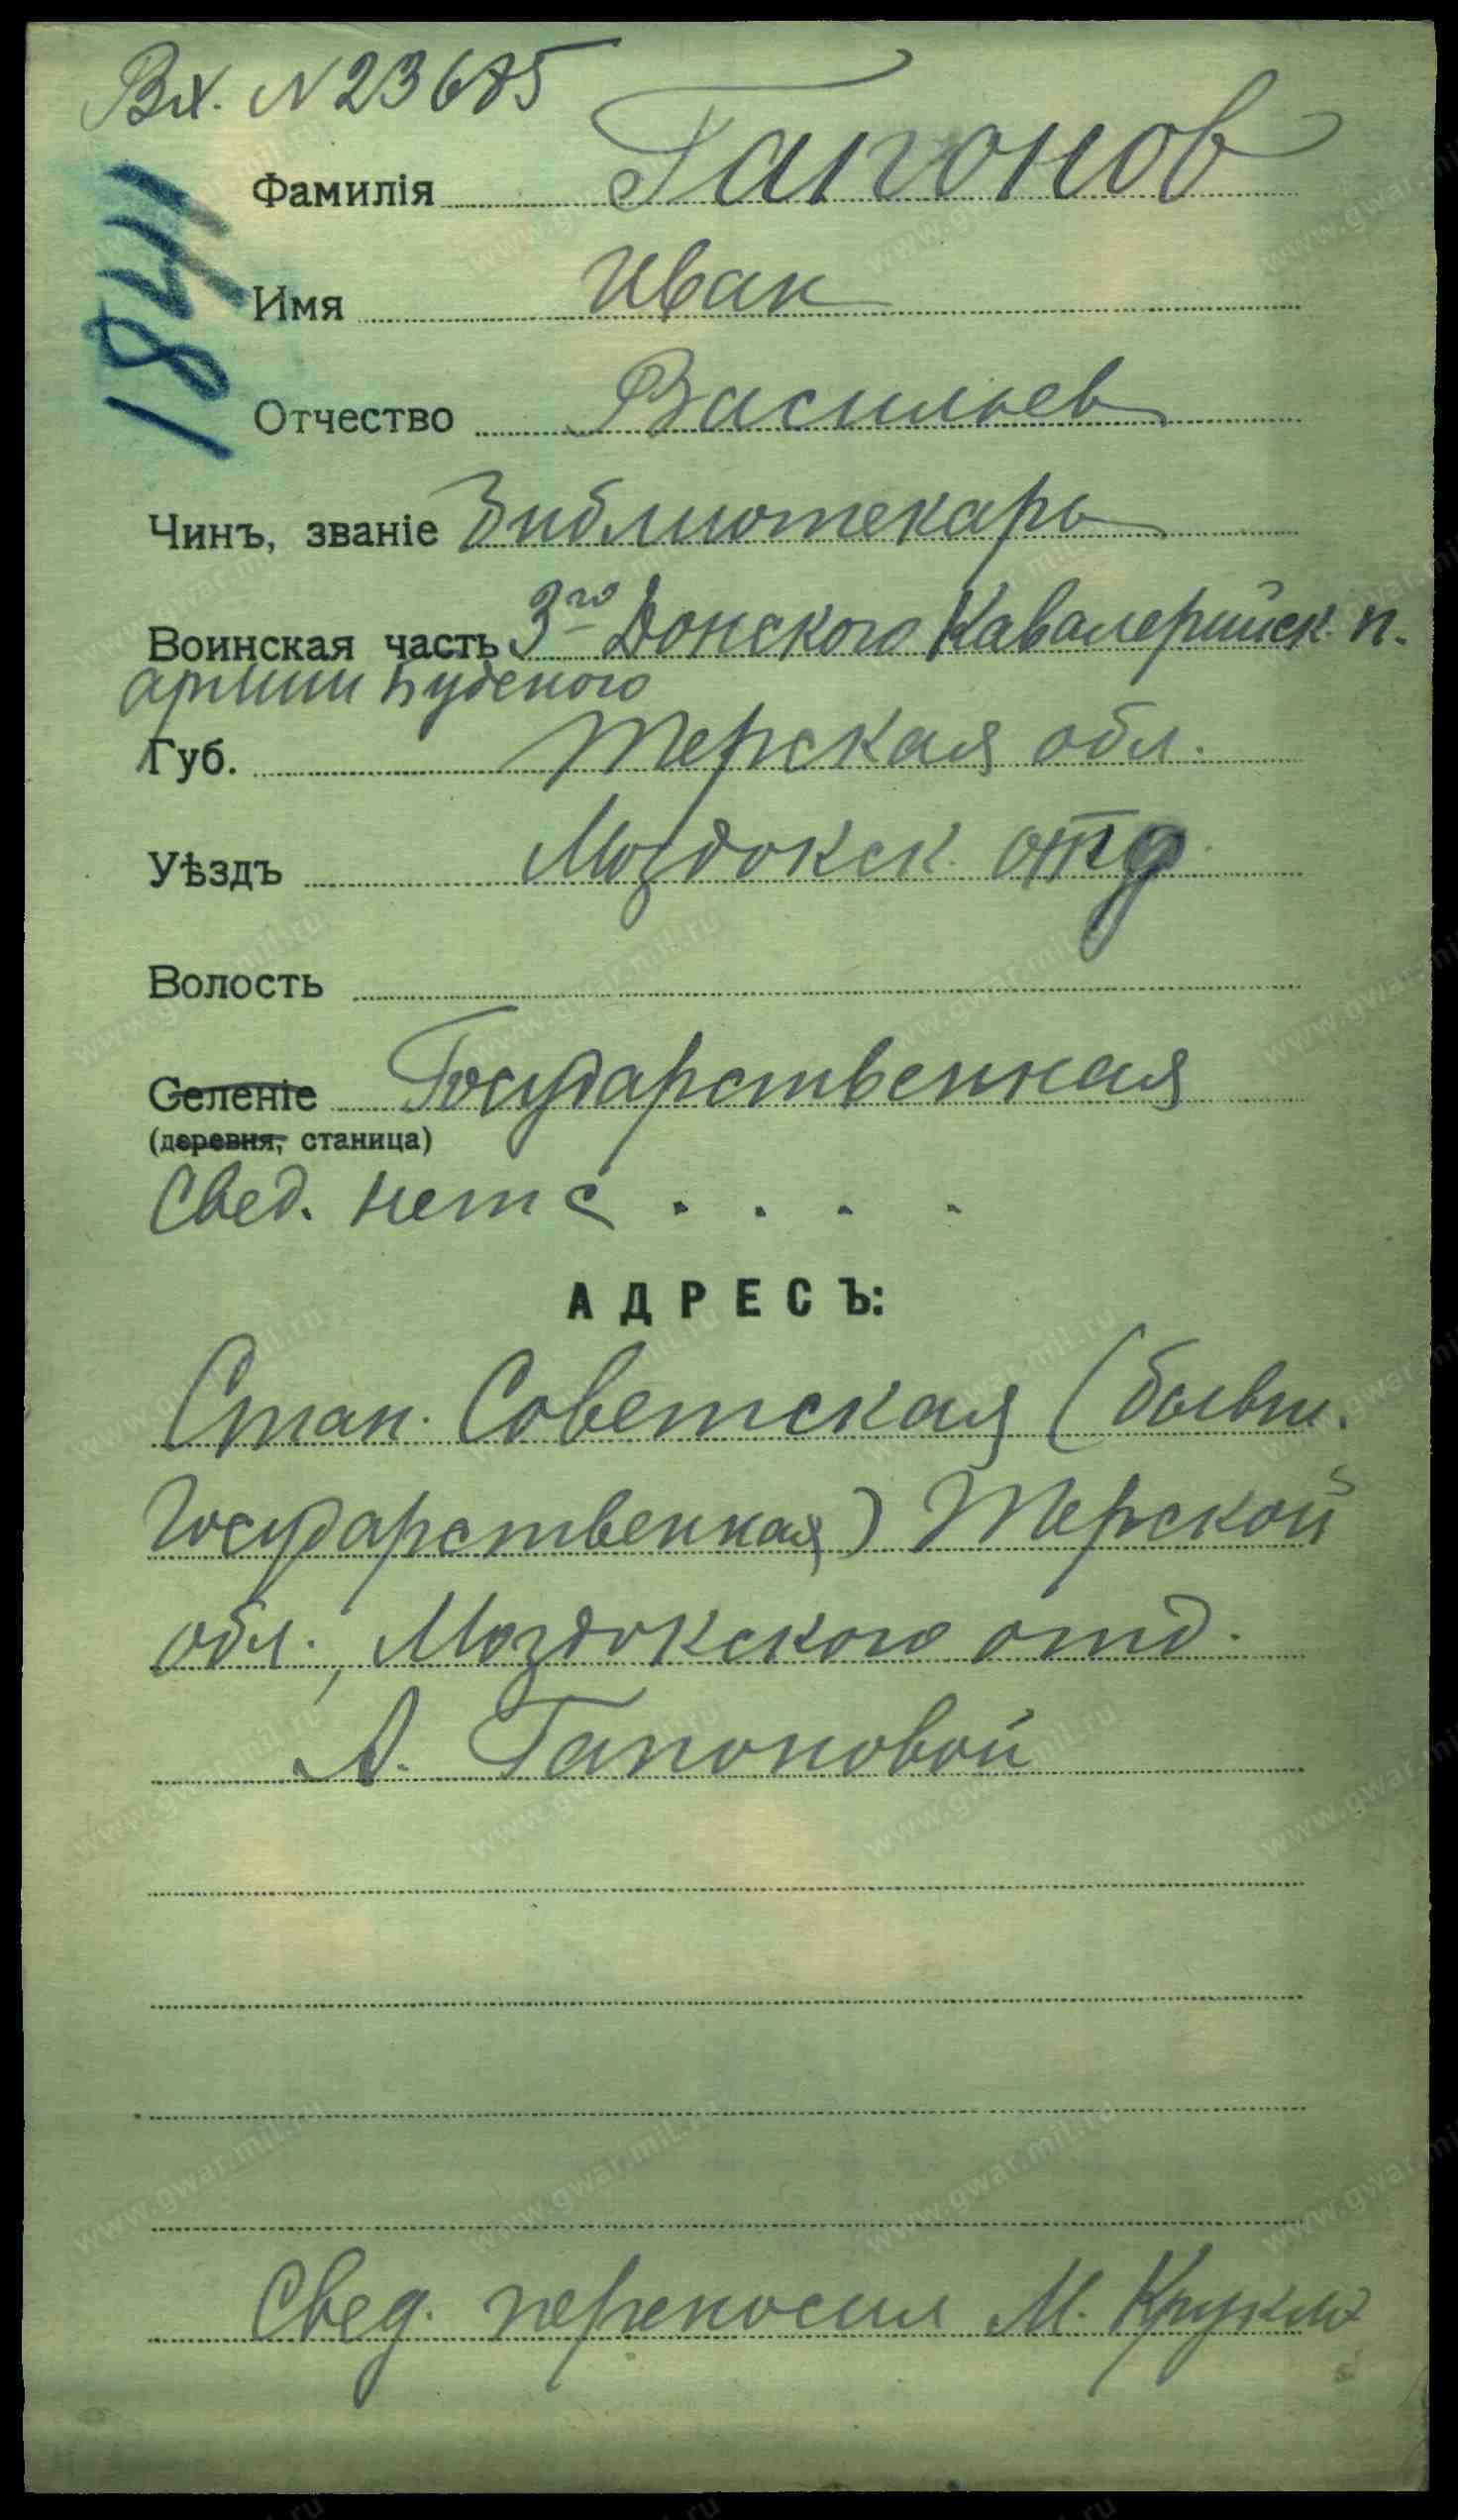 Вх. N 23685
18411
Фамилія Гапонов
Имя Иван
Отчество Васильев
Чинъ, званіе Библиотекарь
Воинская часть 3го Донского Кавалерийск. п.
армии Буденого
Губ. Терская обл.
Уѣздъ Моздокск. отд.
Волость
Селеніе Государственная
(деревня, станица)
Свед. нет
АДРЕСЪ:
Стан. Советская (бывш.
Государственная) Терской
обл., Моздокского отд.
А. Гапоновой
Свед. переносил М.